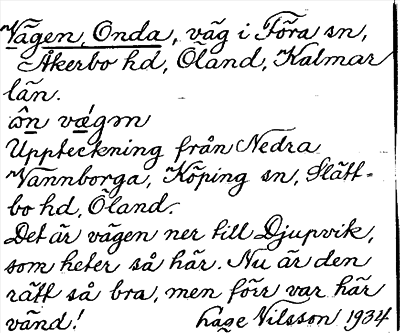 Vägen, Onda, väg i Föra sn,
Åkerbo hd, Öland, Kalmar
län.
Uppteckning från Nedra
Vannborga, Köping sn, Slätt-
bo hd, Öland.
Det är vägen ner till Djupvik,
som heter så här. Nu är den
rätt så bra, men förr var här
vänd! Lage Nilsson 1934